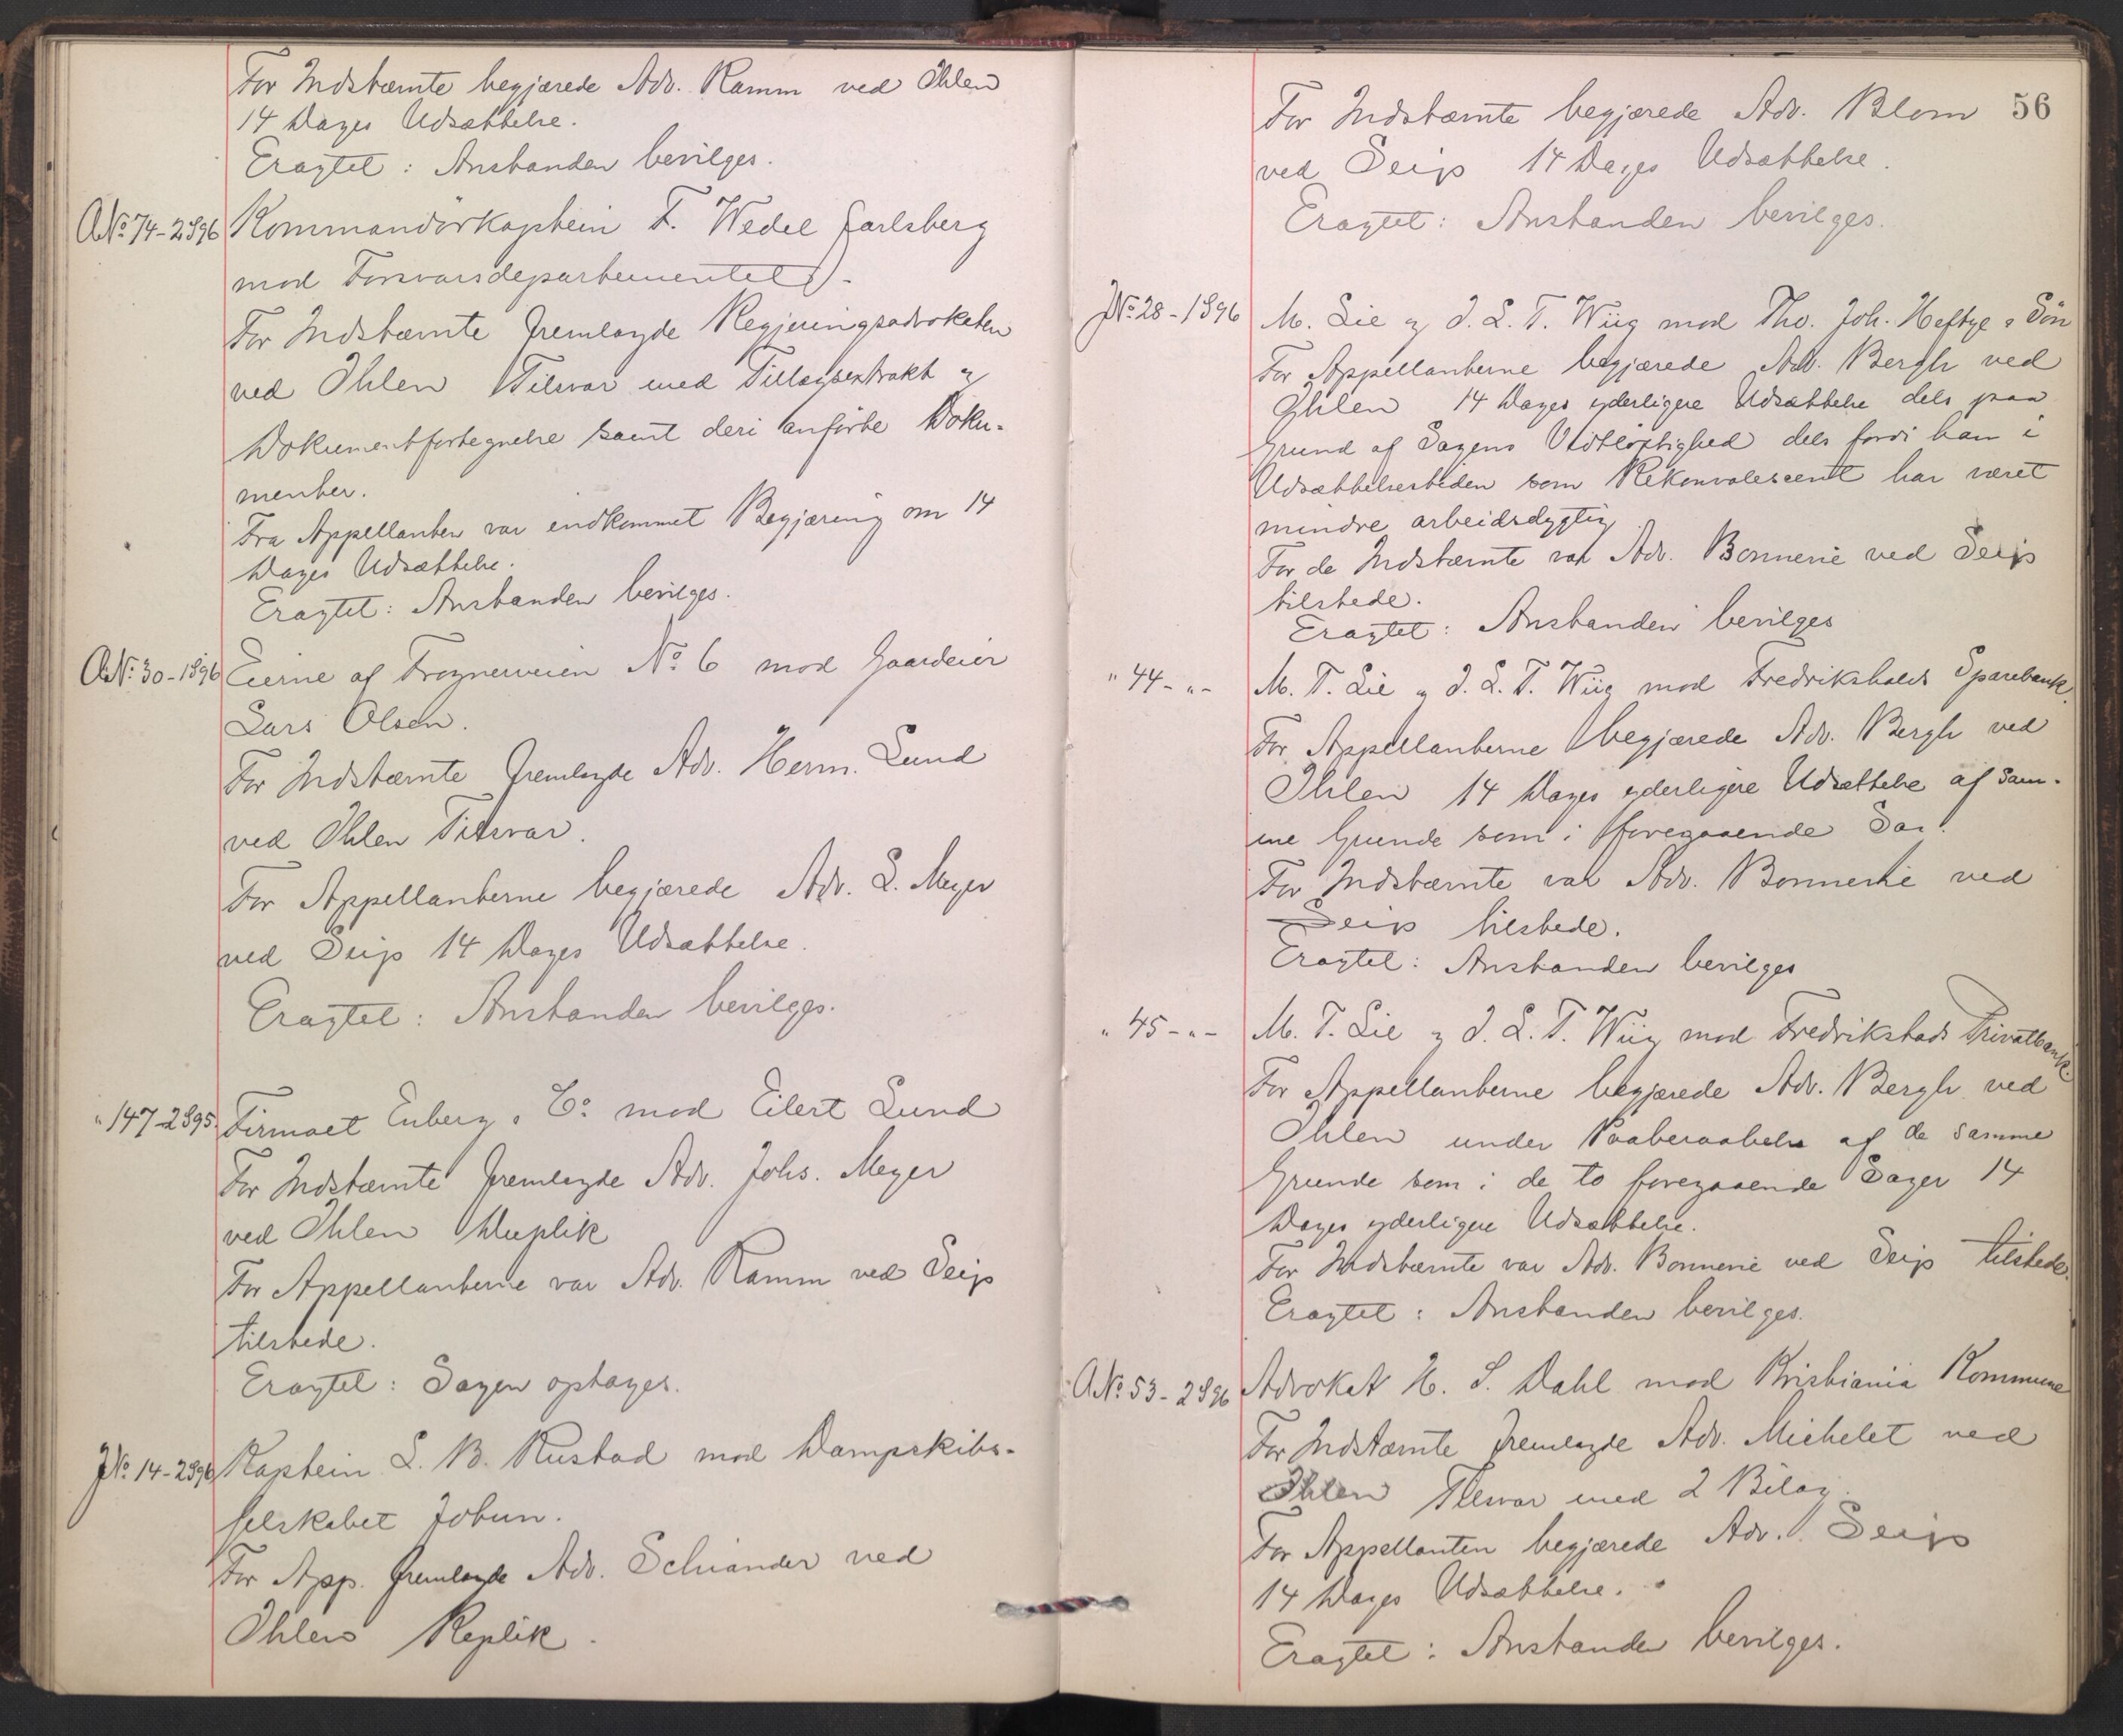 For Indstævnte begjærede Adv. Ramm ved Ihlen
14 Dages Udsættelse.
Eragtet: Anstanden bevilges.
A No. 74-2 896 Kommandörkaptein F. Wedel Jarlsberg
mod Forsvarsdepartementet.
For Indstævnte fremlagde Regjeringsadvokaten
ved Ihlen Tilsvar med Tillægsextrakt og
Dokumentfortegnelse samt deri anførte Doku-
menter.
Fra Appellanten var indkommet Begjæring om 14
Dages Udsættelse.
Eragtet: Anstanden bevilges.
A No. 30-1896 Eierne af Frognerveien No. 6 mod Gaardeier
Lars Olsen.
For Indstævnte fremlagde Adv. Herm. Lund
ved Ihlen Tilsvar.
For Appellanterne begjærede Adv. L. Meyer
ved Seip 14 Dages Udsættelse.
Eragtet: Anstanden bevilges.
" 147-2 895. Firmaet Enberg & Co. mod Eilert Lund
For Indstævnte fremlagde Adv. Johs. Meyer
ved Ihlen Duplik
For Appellanterne var Adv. Ramm ved Seip
tilstede.
Eragtet: Sagen optages.
J No. 14-2 896 Kaptein L. B. Rustad mod Dampskibs-
selskabet Jotun.
For App. fremlagde Adv. Schiander ved
Ihlen Replik.
56
For Indstævnte begjærede Adv. Blom
ved Seip 14 Dages Udsættelse.
Eragtet: Anstanden bevilges.
J No. 28-1896 M. Lie og J. L. T. Wiig mod Tho. Joh. Heftye & Sön
For Appellanterne begjærede Adv. Bergh ved
Ihlen 14 Dages yderligere Udsættelse dels paa
Grund af Sagens Vidtløftighed dels fordi han i
Udsættelsestiden som Rekonvalescent har været
mindre arbeidsdygtig
For de Indstævnte var Adv. Bonnevie ved Seip
tilstede.
Eragtet: Anstanden bevilges
" 44-"- M. T. Lie og J. L. T. Wiig mod Fredrikshalds Sparebank.
For Appellanterne begjærede Adv. Bergh ved
Ihlen 14 Dages yderligere Udsættelse af sam-
me Grunde som i foregaaende Sag.
For Indstævnte var Adv. Bonnevie ved
Seip tilstede.
Eragtet: Anstanden bevilges
" 45-"- M. T. Lie og J. L. T. Wiig mod Fredrikstads Privatbank.
For Appellanterne begjærede Adv. Bergh ved
Ihlen under Paaberaabelse af de samme
Grunde som i de to foregaaende Sager 14
Dages yderligere Udsættelse.
For Indstævnte var Adv. Bonnevie ved Seip tilstede.
Eragtet: Anstanden bevilges.
A No. 53-2 896 Advokat H. S. Dahl mod Kristiania Kommune
For Indstævnte fremlagde Adv. Michelet ved
Ihlen Tilsvar med 2 Bilag.
For Appellanten begjærede Adv. Seip
14 Dages Udsættelse.
Eragtet: Anstanden bevilges.